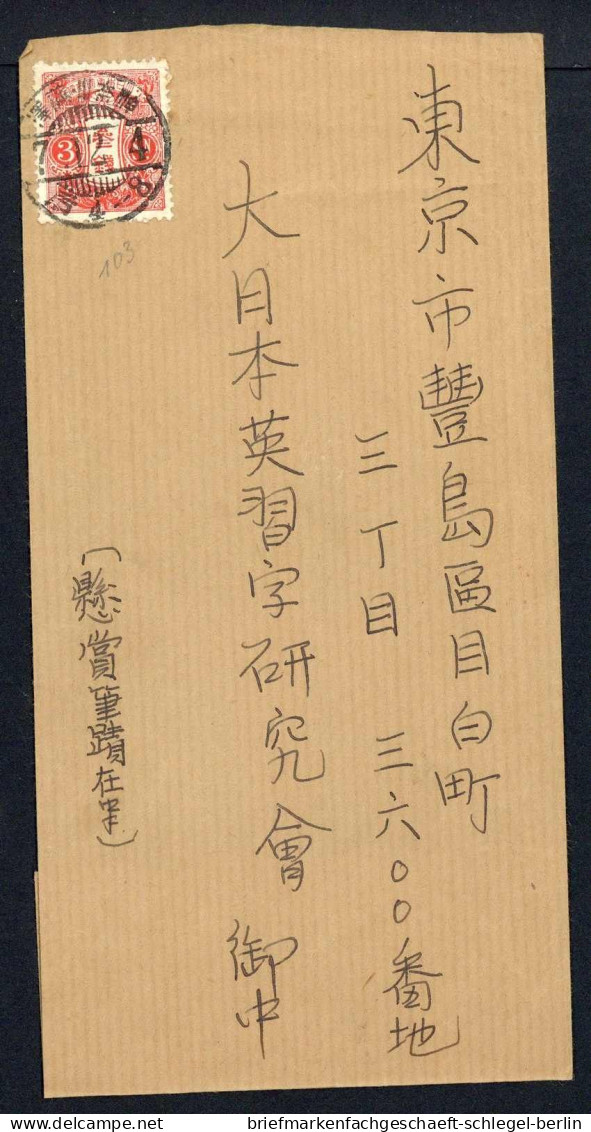 東京市豐島區目白町
三丁目 三六〇〇番地
大日本英習字研究會 御中
（懸賞筆蹟在中）
3
4
4-8
103
delcampe.net
briefmarkenfachgeschaeft-schlegel-berlin